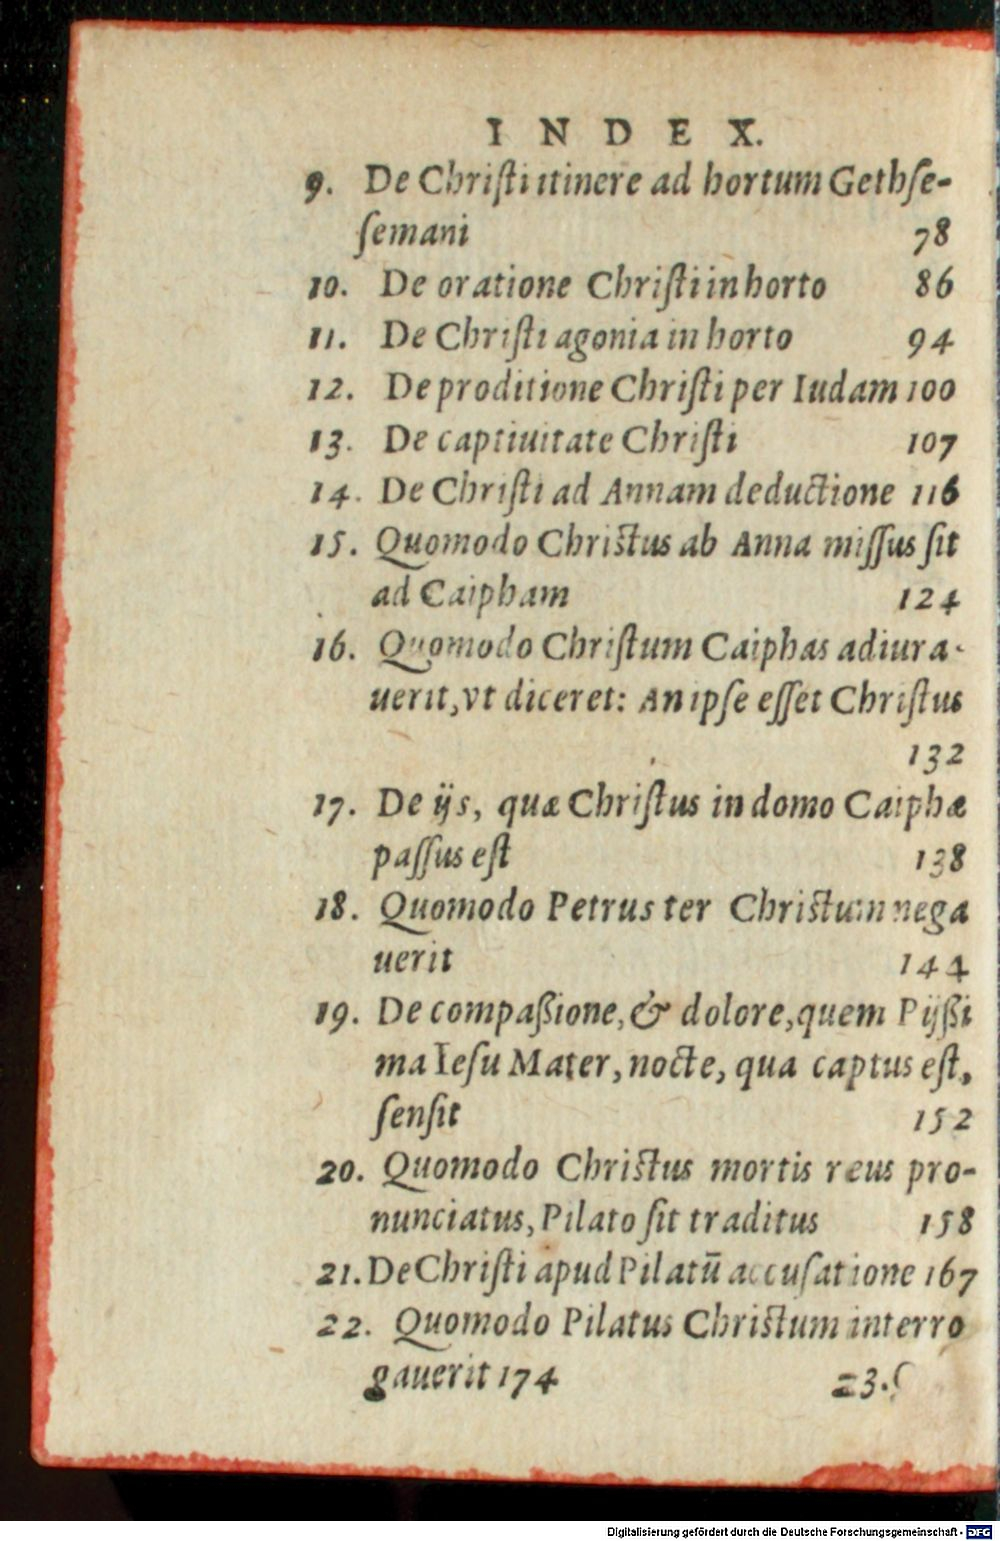 INDEX.
9. De Chriſti itinere ad hortum Gethſe-
ſemani 78
10. De oratione Chriſti in horto 86
11. De Chriſti agonia in horto 94
12. De proditione Chriſti per Iudam 100
13. De captiuitate Chriſti 107
14. De Chriſti ad Annam deductione 116
15. Quomodo Chriſtus ab Anna miſſus ſit
ad Caipham 124
16. Quomodo Chriſtum Caiphas adiura-
uerit, vt diceret: An ipſe eſſet Chriſtus
132
17. De ijs, quæ Chriſtus in domo Caiphæ
paſſus eſt 138
18. Quomodo Petrus ter Chriſtum nega
uerit 144
19. De compaßione, & dolore, quem Pijßi
ma Ieſu Mater, nocte, qua captus eſt,
ſenſit 152
20. Quomodo Chriſtus mortis reus pro-
nunciatus, Pilato ſit traditus 158
21. De Chriſti apud Pilatū accuſatione 167
22. Quomodo Pilatus Chriſtum interro
gauerit 174 23.
Digitalisierung gefördert durch die Deutsche Forschungsgemeinschaft - DFG